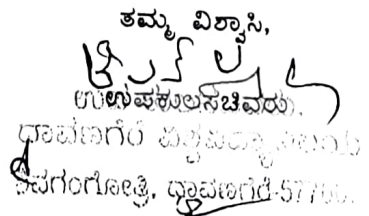 ತಮ್ಮ ವಿಶ್ವಾಸಿ,
ಉಪಕುಲಸಚಿವರು,
ದಾವಣಗೆರೆ ವಿಶ್ವವಿದ್ಯಾನಿಲಯ
ಶಿವಗಂಗೋತ್ರಿ, ದಾವಣಗೆರೆ-